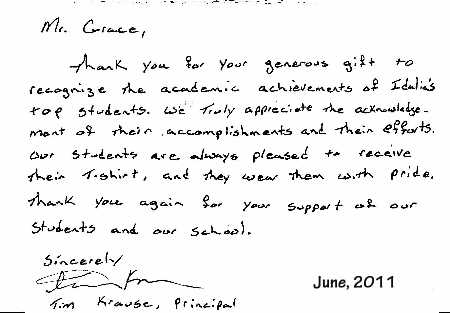 Mr. Grace,
Thank you for your generous gift to
recognize the academic achievements of Idalia's
top students. We Truly appreciate the acknowledge-
ment of their accomplishments and their efforts.
Our students are always pleased to receive
their T-shirt, and they wear them with pride.
Thank you again for your support of our
students and our school.
Sincerely
Tim Krause, Principal
June, 2011